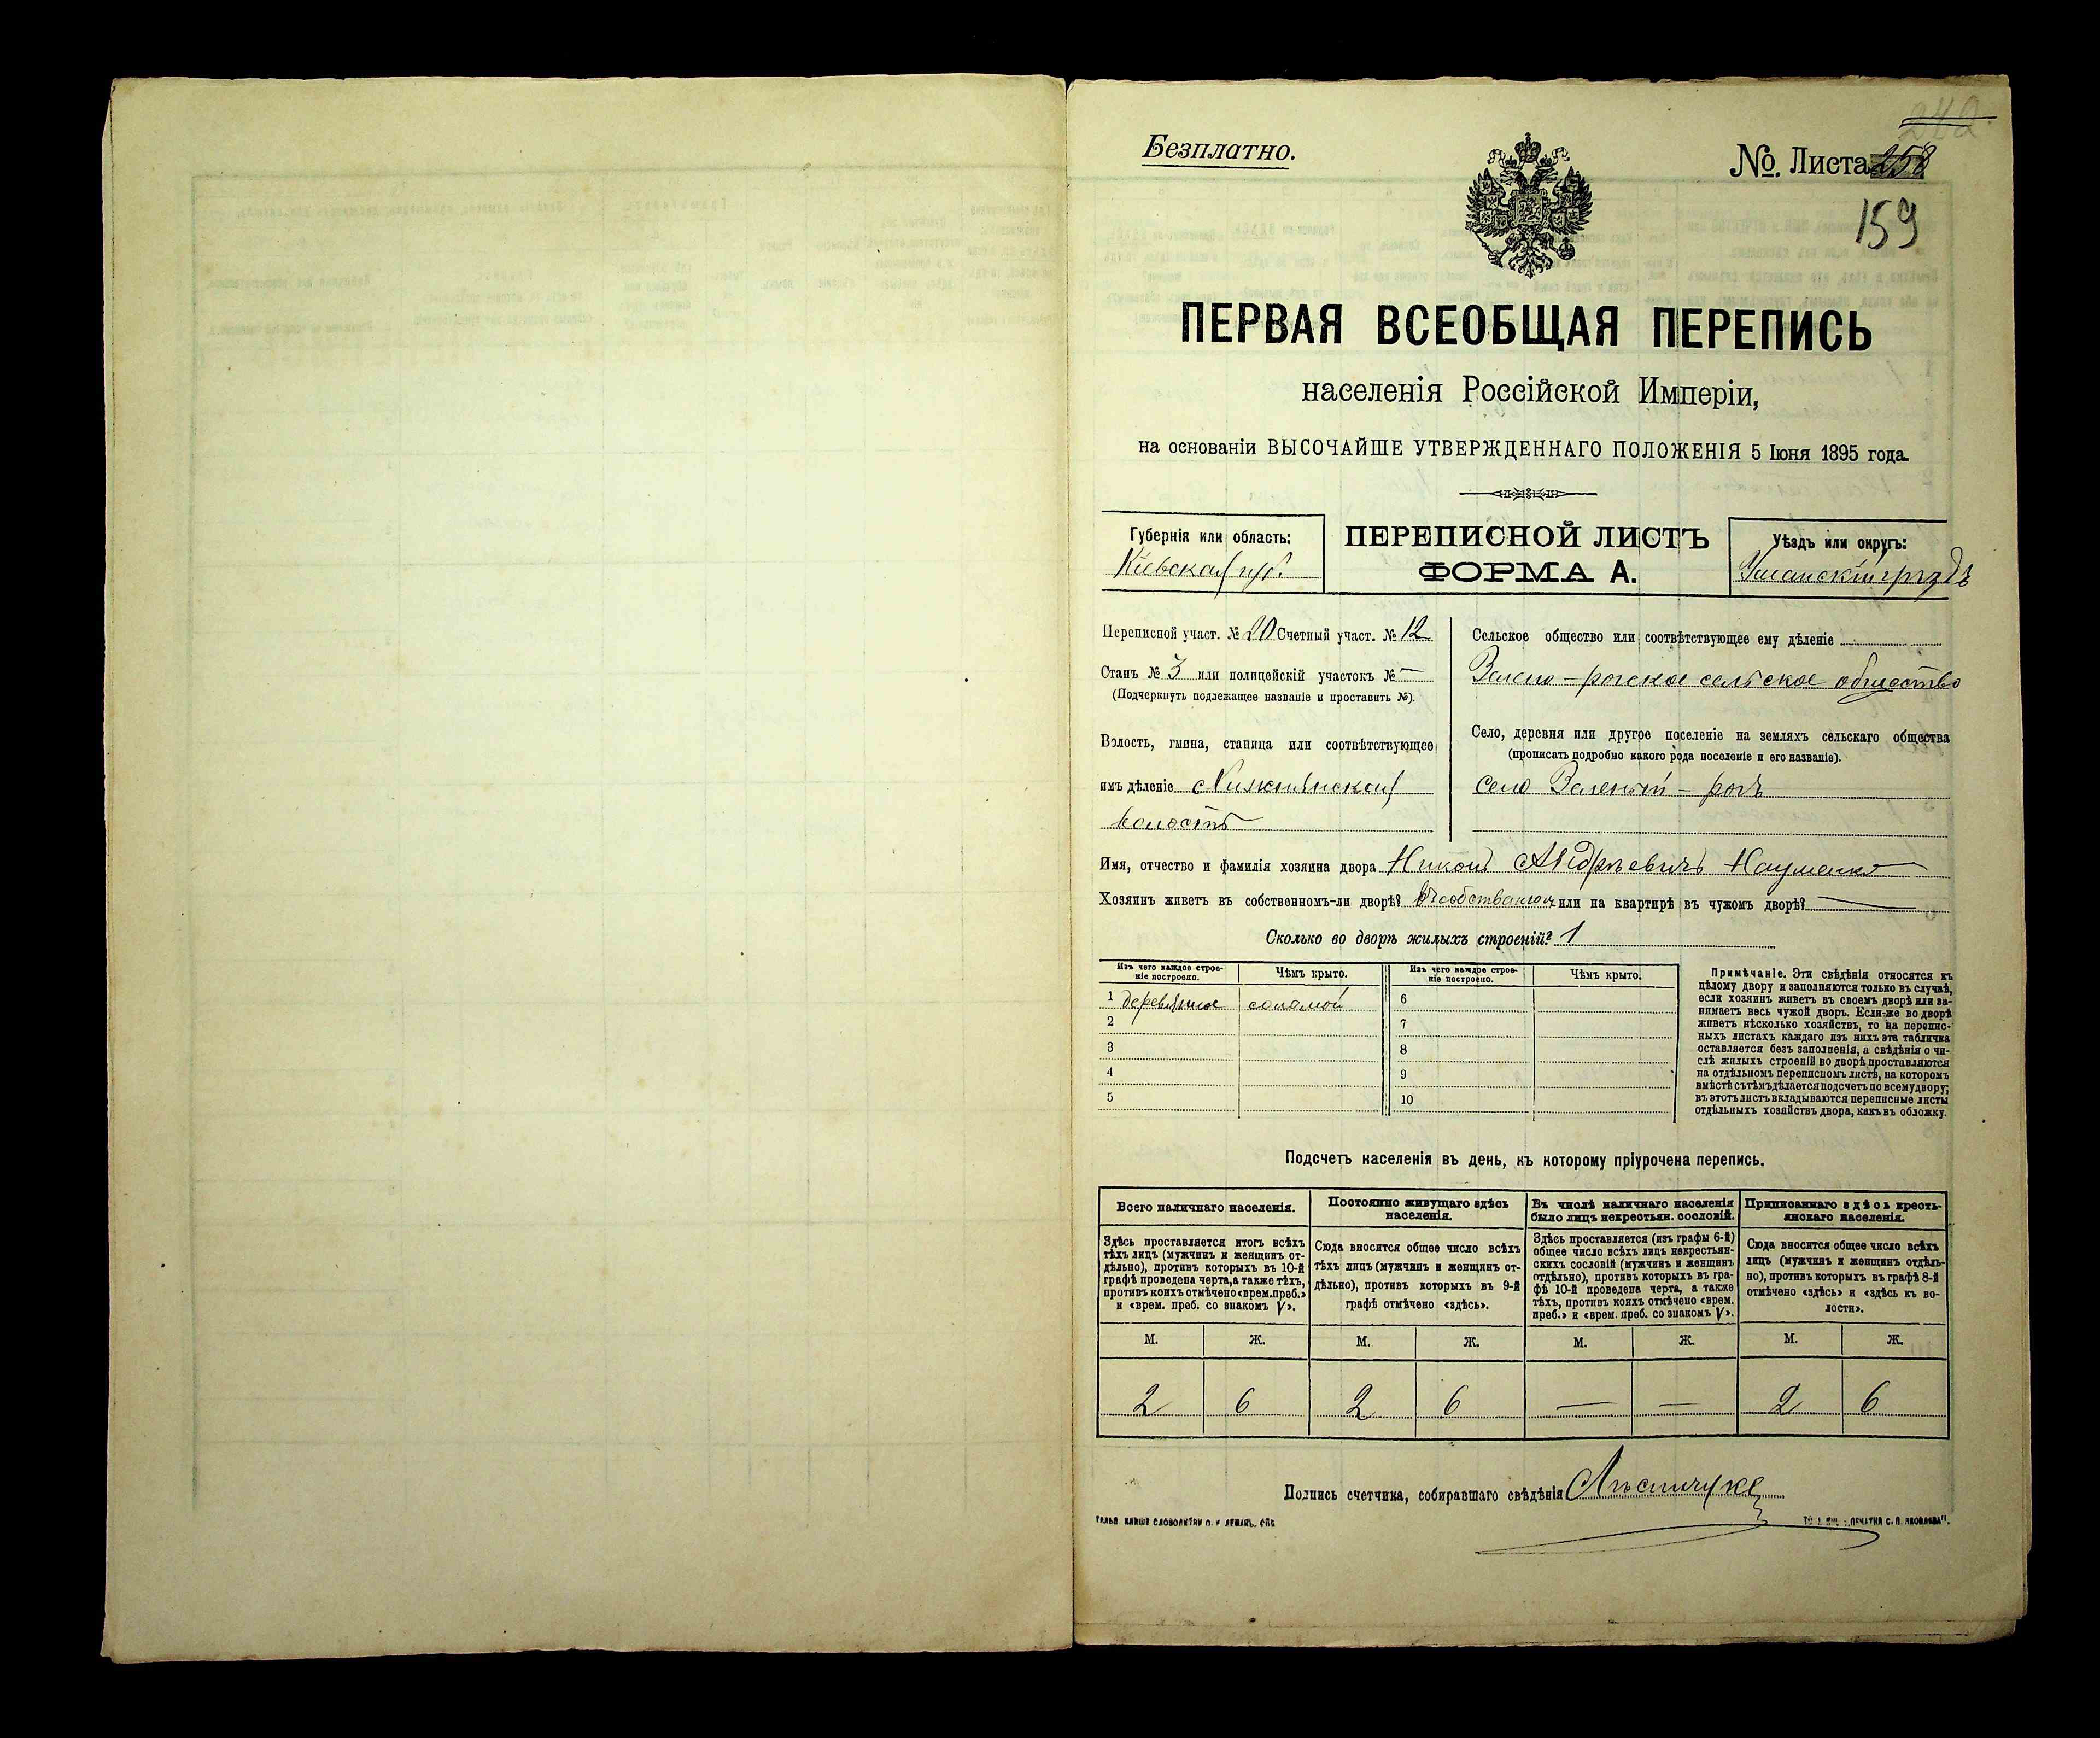 Безплатно.
№. Листа 258
159
ПЕРВАЯ ВСЕОБЩАЯ ПЕРЕПИСЬ
населенія Россійской Имперіи,
на основаніи ВЫСОЧАЙШЕ УТВЕРЖДЕННАГО ПОЛОЖЕНІЯ 5 Іюня 1895 года.
Губернія или область:
Кіевская губ.
ПЕРЕПИСНОЙ ЛИСТЪ
ФОРМА А.
Уѣздъ или округъ:
Уманскій уѣздъ
Переписной участ. № 20 Счетный участ. № 12
Станъ № 3 или полицейскій участокъ № —
(Подчеркнуть подлежащее названіе и проставить №).
Волость, гмина, станица или соотвѣтствующее
имъ дѣленіе
волость
Сельское общество или соотвѣтствующее ему дѣленіе
Зелено-рогское сельское общество
Село, деревня или другое поселеніе на земляхъ сельскаго общества
(прописать подробно какого рода поселеніе и его названіе).
село Зеленый-рогъ
Имя, отчество и фамилія хозяина двора Никонъ Андреевичъ Науменко
Хозяинъ живетъ въ собственномъ-ли дворѣ? въ собственномъ или на квартирѣ въ чужомъ дворѣ? —
Сколько во дворѣ жилыхъ строеній? 1
Изъ чего каждое строе-
ніе построено.
Чѣмъ крыто.
Изъ чего каждое строе-
ніе построено.
Чѣмъ крыто.
1 деревянное соломой
2
3
4
5
6
7
8
9
10
Примѣчаніе. Эти свѣдѣнія относятся къ
цѣлому двору и заполняются только въ случаѣ,
если хозяинъ живетъ въ своемъ дворѣ или за-
нимаетъ весь чужой дворъ. Если-же во дворѣ
живетъ нѣсколько хозяйствъ, то на перепис-
ныхъ листахъ каждаго изъ нихъ эта табличка
оставляется безъ заполненія, а свѣдѣнія о чи-
слѣ жилыхъ строеній во дворѣ проставляются
на отдѣльномъ переписномъ листѣ, на которомъ
вмѣстѣ съ тѣмъ дѣлается подсчетъ по всему двору;
въ этотъ листъ вкладываются переписные листы
отдѣльныхъ хозяйствъ двора, какъ въ обложку.
Подсчетъ населенія въ день, къ которому пріурочена перепись.
Всего наличнаго населенія.
Здѣсь проставляется итогъ всѣхъ
тѣхъ лицъ (мужчинъ и женщинъ от-
дѣльно), противъ которыхъ въ 10-й
графѣ проведена черта, а также тѣхъ,
противъ коихъ отмѣчено «врем. преб.»
и «врем. преб. со знакомъ V».
Постоянно живущаго здѣсь
населенія.
Сюда вносится общее число всѣхъ
тѣхъ лицъ (мужчинъ и женщинъ от-
дѣльно), противъ которыхъ въ 9-й
графѣ отмѣчено «здѣсь».
Въ числѣ наличнаго населенія
было лицъ некрестьян. сословій.
Здѣсь проставляется (изъ графы 6-й)
общее число всѣхъ лицъ некрестьян-
скихъ сословій (мужчинъ и женщинъ
отдѣльно), противъ которыхъ въ гра-
фѣ 10-й проведена черта, а также
тѣхъ, противъ коихъ отмѣчено «врем.
преб.» и «врем. преб. со знакомъ V».
Приписаннаго здѣсь кресть-
янскаго населенія.
Сюда вносится общее число всѣхъ
лицъ (мужчинъ и женщинъ отдѣль-
но), противъ которыхъ въ графѣ 8-й
отмѣчено «здѣсь» и «здѣсь къ во-
лости».
М. Ж. М. Ж. М. Ж. М. Ж.
2 6 2 6 — — 2 6
Подпись счетчика, собиравшаго свѣдѣнія